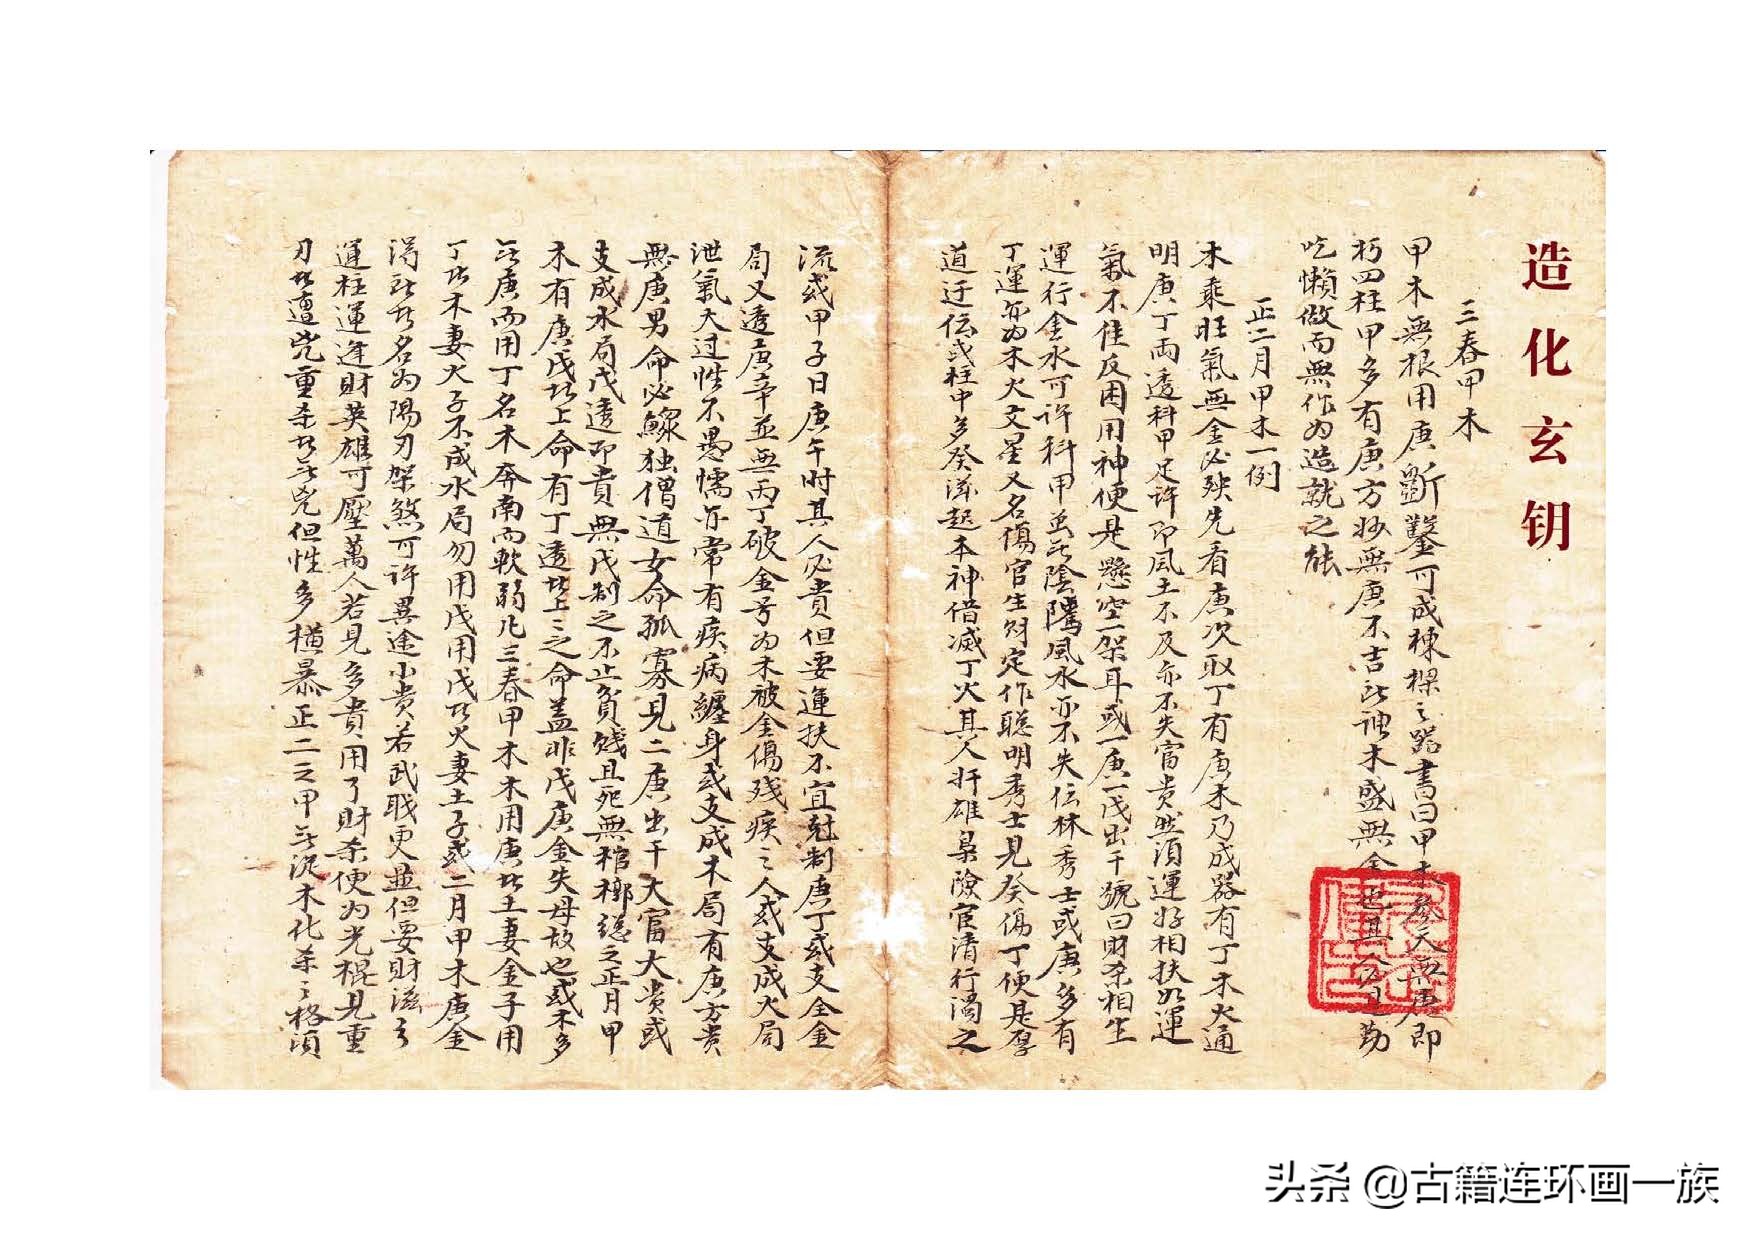 造化玄钥
三春甲木
甲木無根用庚斷鑿可成棟樑之器書曰甲木參天無庚人即
朽四柱甲多有庚方妙無庚不吉此神木盛無金也其人必是勤
吃懶做而無作为造就之能
正二月甲木一例
木乘旺氣無金必殃先看庚次取丁有庚木乃成器有丁木火通
明庚丁兩透科甲足许即風土不及亦不失富贵然須運好相扶如運
氣不佳反困用神便是懸空一架耳或一庚一戊出干號曰財杀相生
運行金水可许科甲並此陰隲風水亦不失伝林秀士或庚多有
丁運亦为木火文星又名傷官生財定作聪明秀士見癸傷丁便是厚
道迂伝或柱中多癸滋起本神借滅丁火其人奸雄梟險宦清行濁之
流或甲子日庚午时其人必貴但要運扶不宜尅制庚丁或支全金
局又透庚辛並無丙丁破金号为木被金傷残疾之人或支成火局
泄氣大过性不愚懦亦常有疾病纏身或支成木局有庚方贵
無庚男命必鰥独僧道女命孤寡見二庚出干大富大贵或
支成水局戊透即貴無戊制之不止貧贱且死無棺槨総之正月甲
木有庚戊者上命有丁透者上之命盖非戊庚金失母故也或木多
无庚而用丁名木奔南而軟弱凡三春甲木木用庚者土妻金子用
丁者木妻火子不成水局勿用戊用戊者火妻土子或二月甲木庚金
淂此者名为陽刃架煞可许異途小贵若武职更並但要財滋之
運柱運逢財英雄可壓萬人若見多貴用了財杀便为光棍見重
刃者遭凶重杀者无凶但性多横暴正二之甲无从木化杀之格須
头杀 @古籍连环画一族